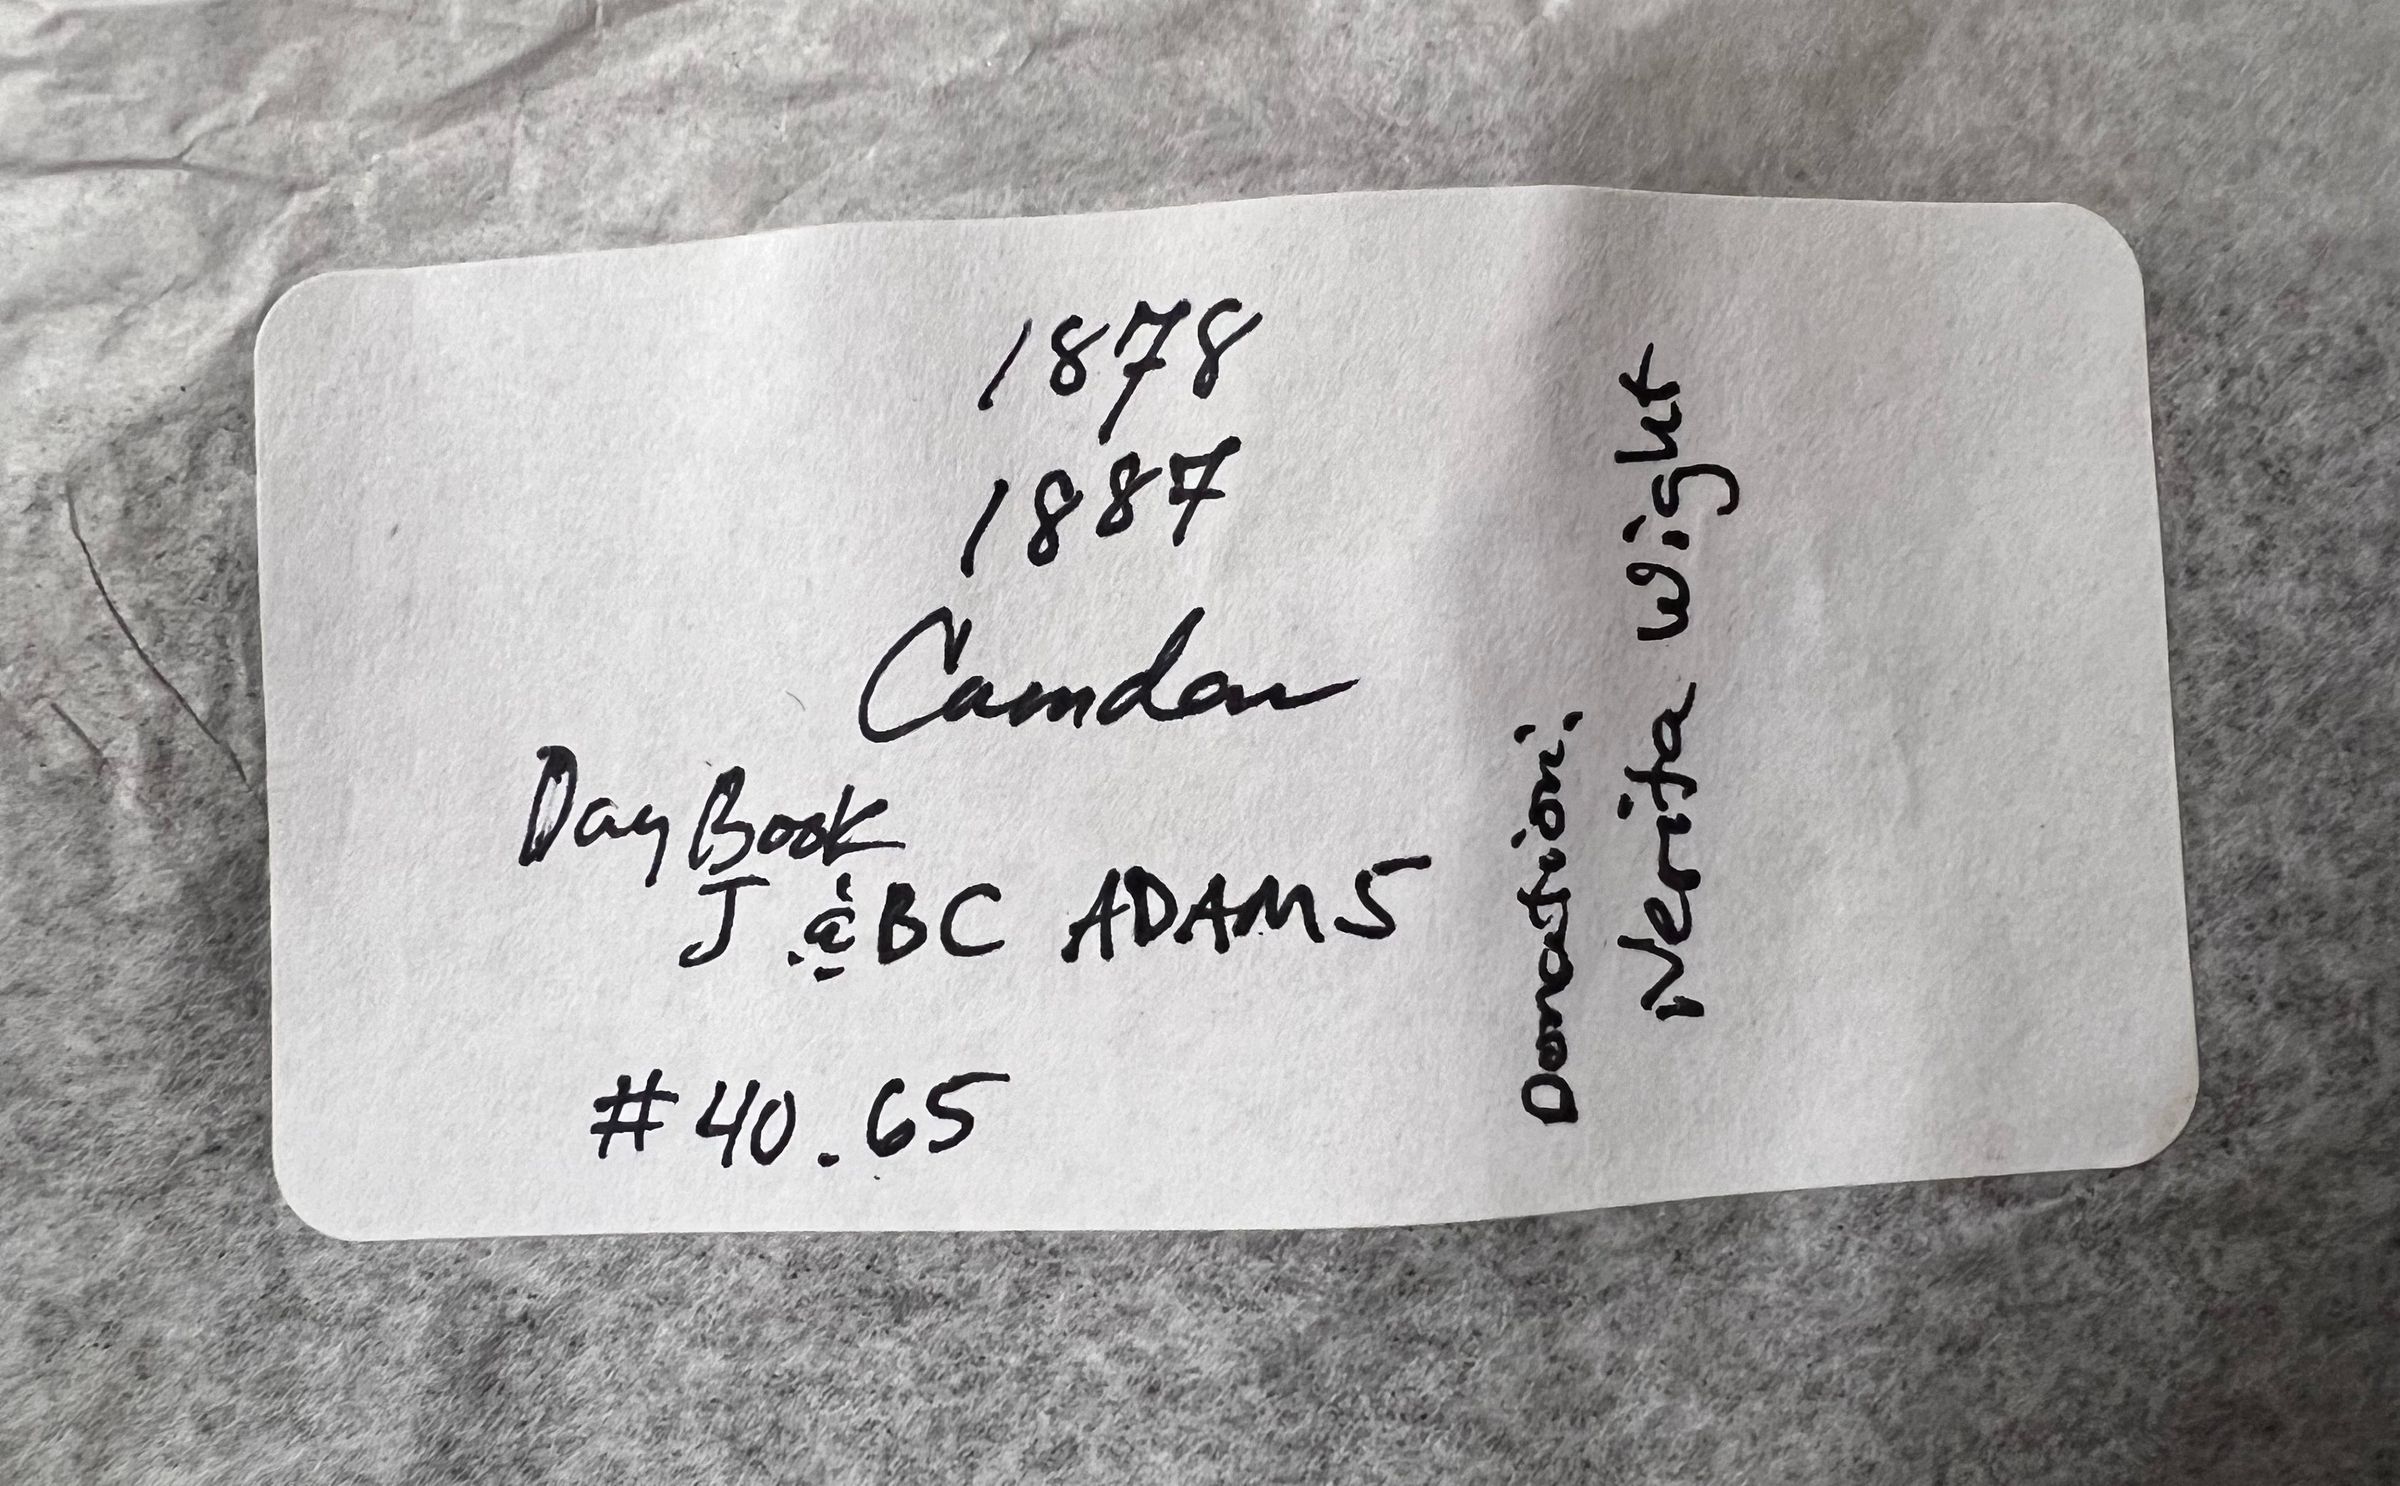 1878
1887
Camden
Day Book
J & BC ADAMS
#40.65
Donation:
Nerita Wight